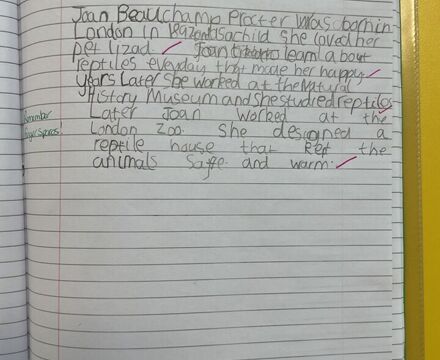 Joan Beauchamp Procter was bornin
London in as a child she loved her
pet lizad Joan learn a bout
reptiles eveyday that made her happy
years later she worked at the Natural
History Museum and she studied reptiles
Later Joan worked at the
London Zoo. She designed a
reptile house that kept the
animals Saffe and warm.
Remember
finger spaces!